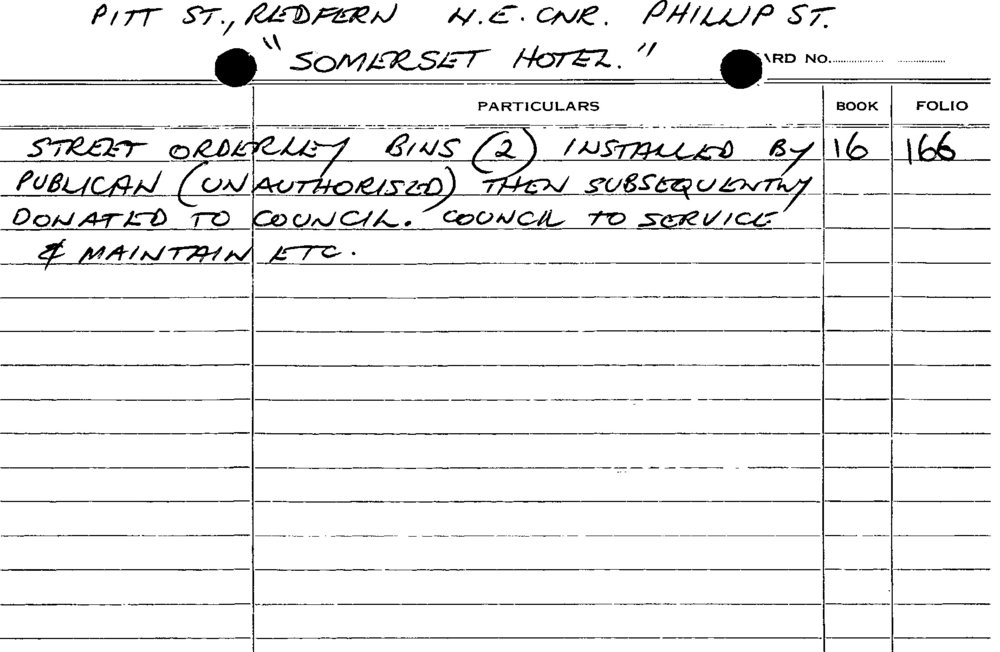 PITT ST., REDFERN N.E. CNR. PHILLIP ST.
"SOMERSET HOTEL." ARD NO.
PARTICULARS BOOK FOLIO
STREET ORDERLEY BINS (2) INSTALLED BY 16 166
PUBLICAN (UNAUTHORISED) THEN SUBSEQUENTLY
DONATED TO COUNCIL. COUNCIL TO SERVICE
& MAINTAIN ETC.